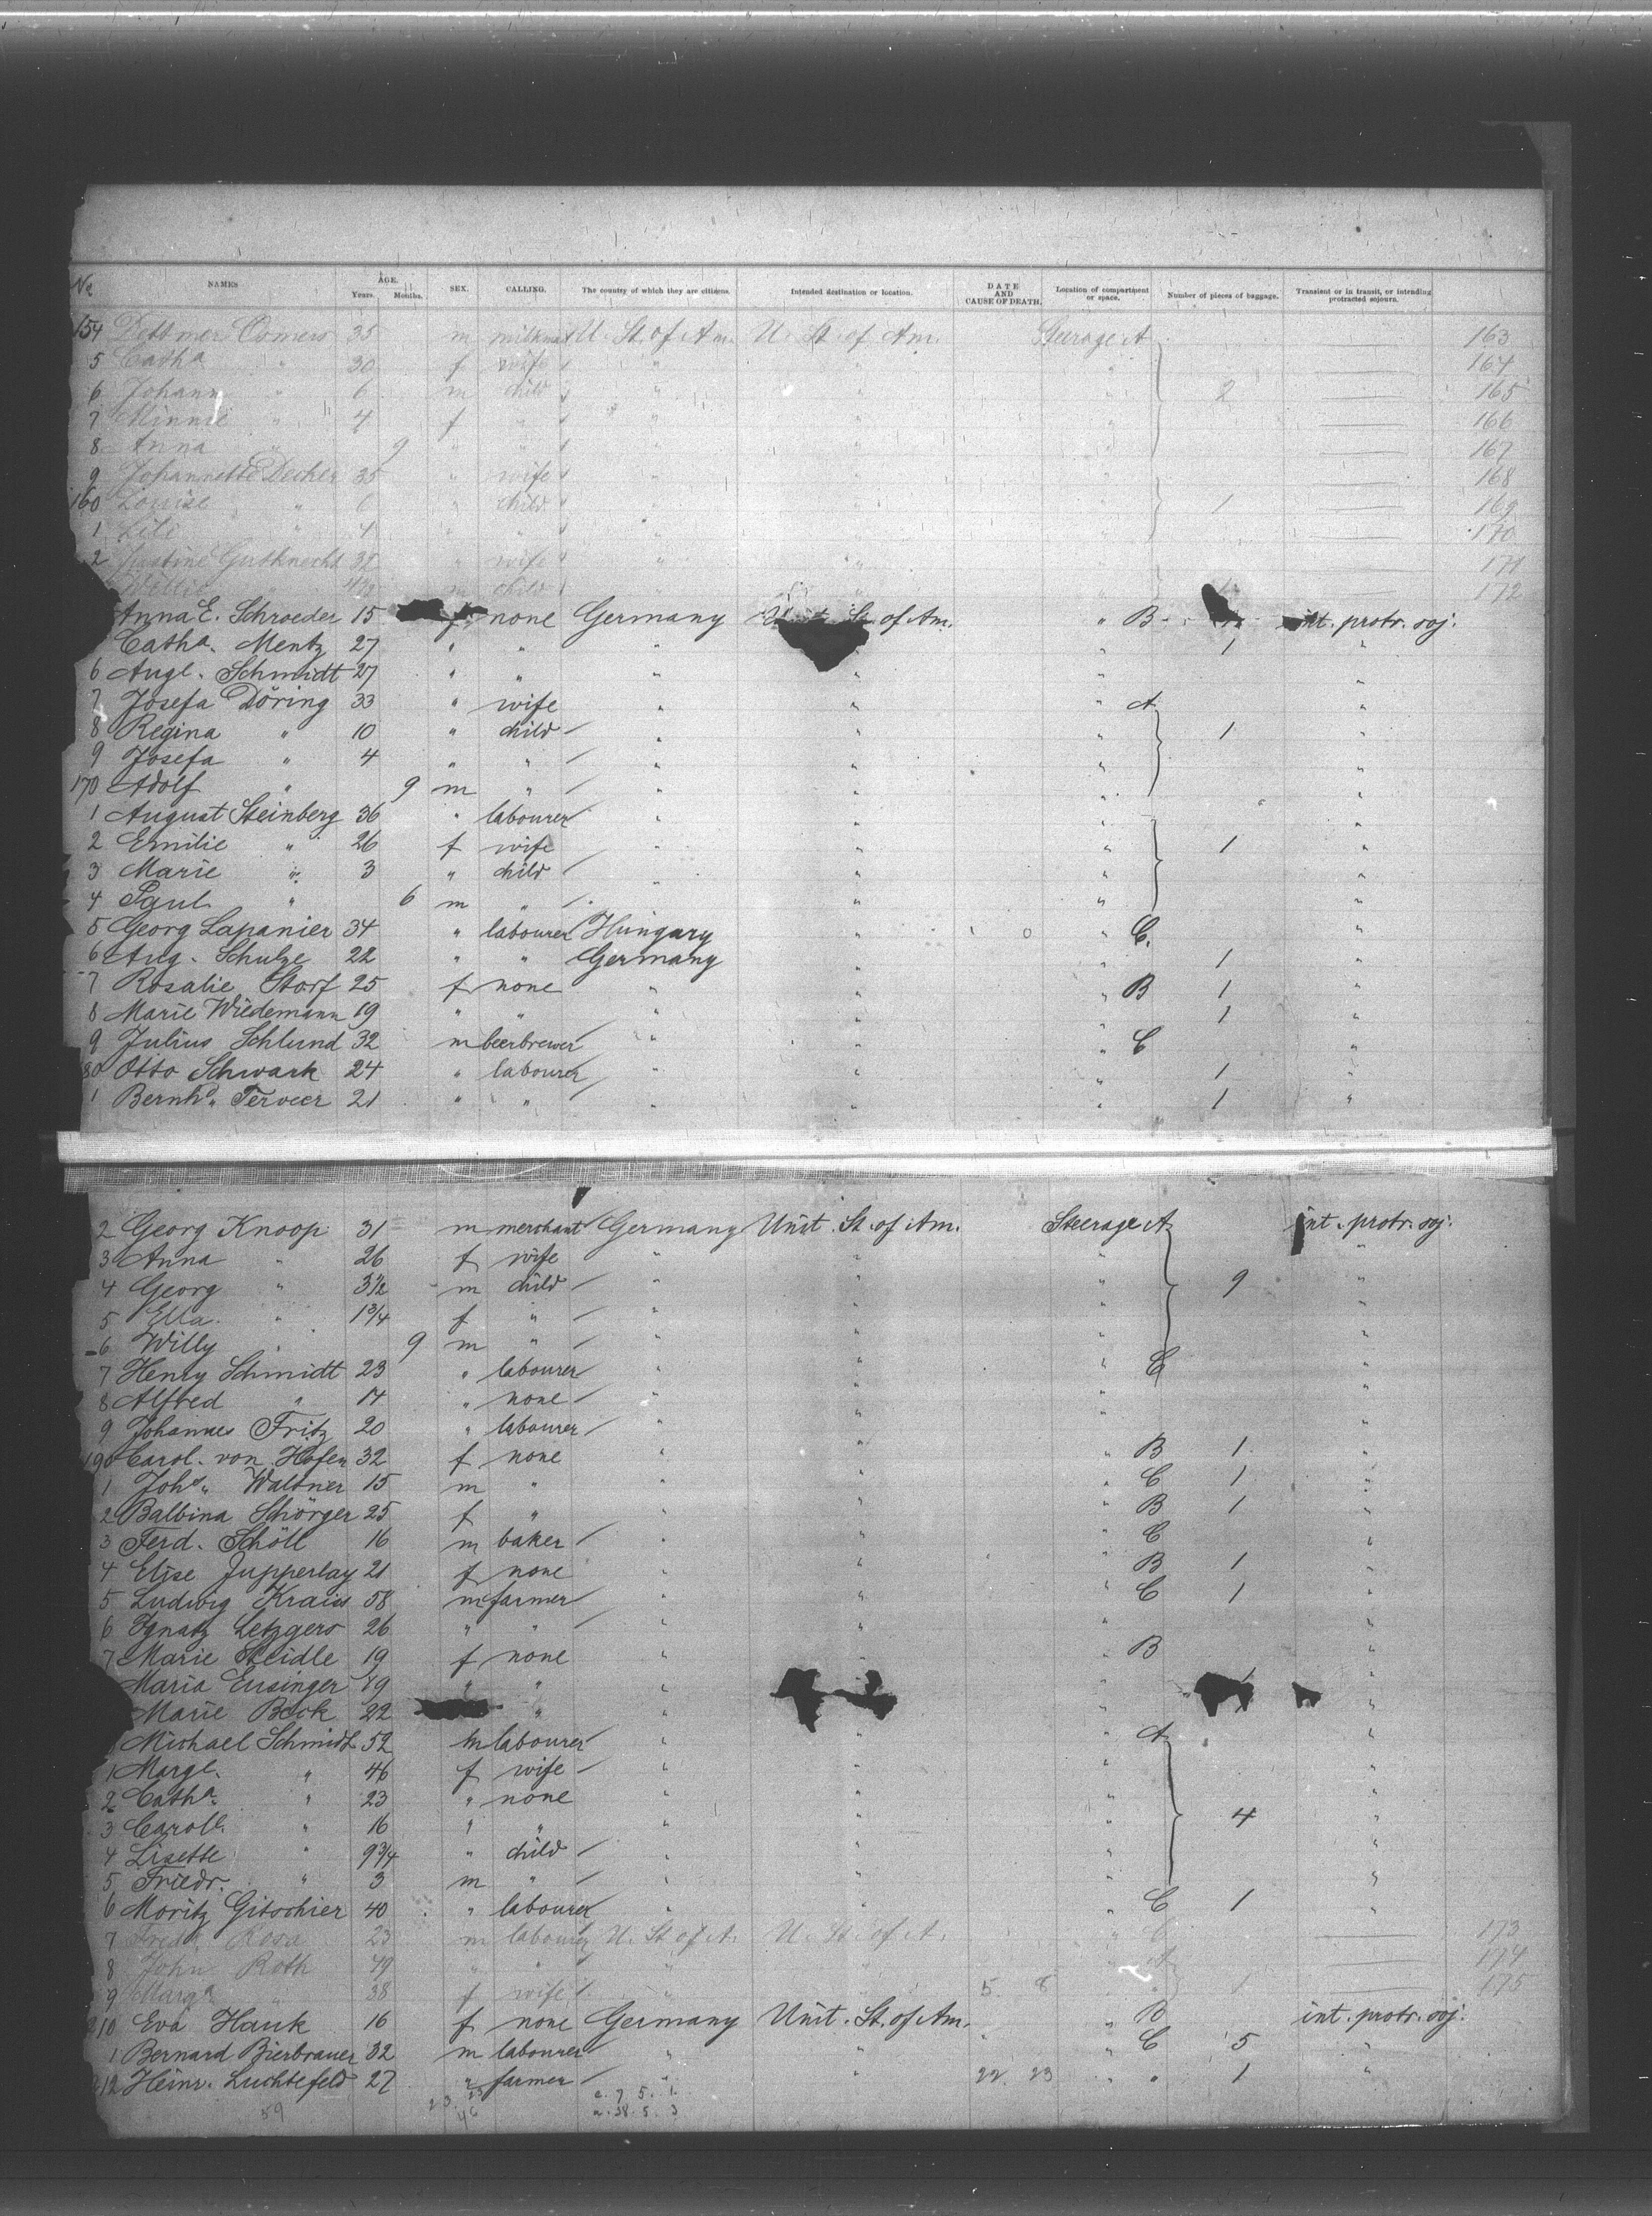 No NAMES AGE. Years. Months. SEX. CALLING. The country of which they are citizens. Intended destination or location. DATE AND CAUSE OF DEATH. Location of compartment or space. Number of pieces of baggage. Transient or in transit, or intending protracted sojourn.
154 Dettmer 35 m milkman U. St. of Am. U. St. of Am. Steerage A 163
5 Cath.a " 30 f wife " " " 164
6 Johann " 6 m child " " " 2 165
7 Minnie " 4 f " " " " 166
8 Anna " 9 " " " " " 167
9 Johannette Decher 35 " wife " " " 168
160 Louise " 6 " child " " " 1 169
1 " 4 " " " " " 170
2 Justine Gutknecht 32 " wife " " " 171
m child 172
Anna E. Schroeder 15 f none Germany St. of Am. " B int. protr. soj.
Cath.a Mentz 27 " " " " 1 "
6 Augt. Schmidt 27 " " " " " "
7 Josefa Döring 33 " wife " " " A "
8 Regina " 10 " child " " " 1 "
9 Josefa " 4 " " " " " "
170 Adolf " 9 m " " " " "
1 August Steinberg 36 " labourer " " " "
2 Emilie " 26 f wife " " " 1 "
3 Marie " 3 " child " " " "
4 Paul " 6 m " " " " "
5 Georg Lapanier 34 " labourer Hungary " " C. "
6 Aug. Schulze 22 " " Germany " " 1 "
7 Rosalie Storf 25 f none " " " B 1 "
8 Marie Wiedemann 19 " " " " " 1 "
9 Julius Schlund 32 m beerbrewer " " " C "
80 Otto Schwark 24 " labourer " " " 1 "
1 Bernhd. Terveer 21 " " " " " 1 "
2 Georg Knoop 31 m merchant Germany Unit. St. of Am. Steerage A int. protr. soj.
3 Anna " 26 f wife " " "
4 Georg " 3½ m child " " " 9 "
5 Ella " 1¾ f " " " " "
6 Willy " 9 m " " " " "
7 Henry Schmidt 23 " labourer " " " C "
8 Alfred " 17 " none " " " "
9 Johannes Fritz 20 " labourer " " " "
190 Carol. von Hofen 32 f none " " " B 1 "
1 Johs. Waltner 15 m " " " " C 1 "
2 Balbina Schörger 25 f " " " " B 1 "
3 Ferd. Schöll 16 m baker " " " C "
4 Elise Jupperlay 21 f none " " " B 1 "
5 Ludwig Kraiss 58 m farmer " " " C 1 "
6 Ignatz Letzgers 26 " " " " " "
7 Marie Steidle 19 f none " " " B "
Maria Ensinger 49 " " " " "
Marie Beck 22 " " " "
Michael Schmidt 52 m labourer " " " A "
1 Margt. " 46 f wife " " " "
2 Cath.a " 23 " none " " " "
3 Carole. " 16 " " " " " 4 "
4 Lisette " 9¾ " child " " " "
5 Friedr. " 3 m " " " " "
6 Moritz Gitschier 40 " labourer " " " C 1 "
7 Fredr. Rosa 23 m labourer U. St. of A. U. St. of A. " C 173
8 John Roth 49 " " " " " A 174
9 Marg.a " 38 f wife " " 5 8 " 1 175
210 Eva Hauk 16 f none Germany Unit. St. of Am. " B int. protr. soj.
1 Bernard Bierbrauer 32 m labourer " " " C 5 "
212 Heinr. Luchtefeld 27 " farmer " " 22. 23 " " 1 "
59 23. 23 46